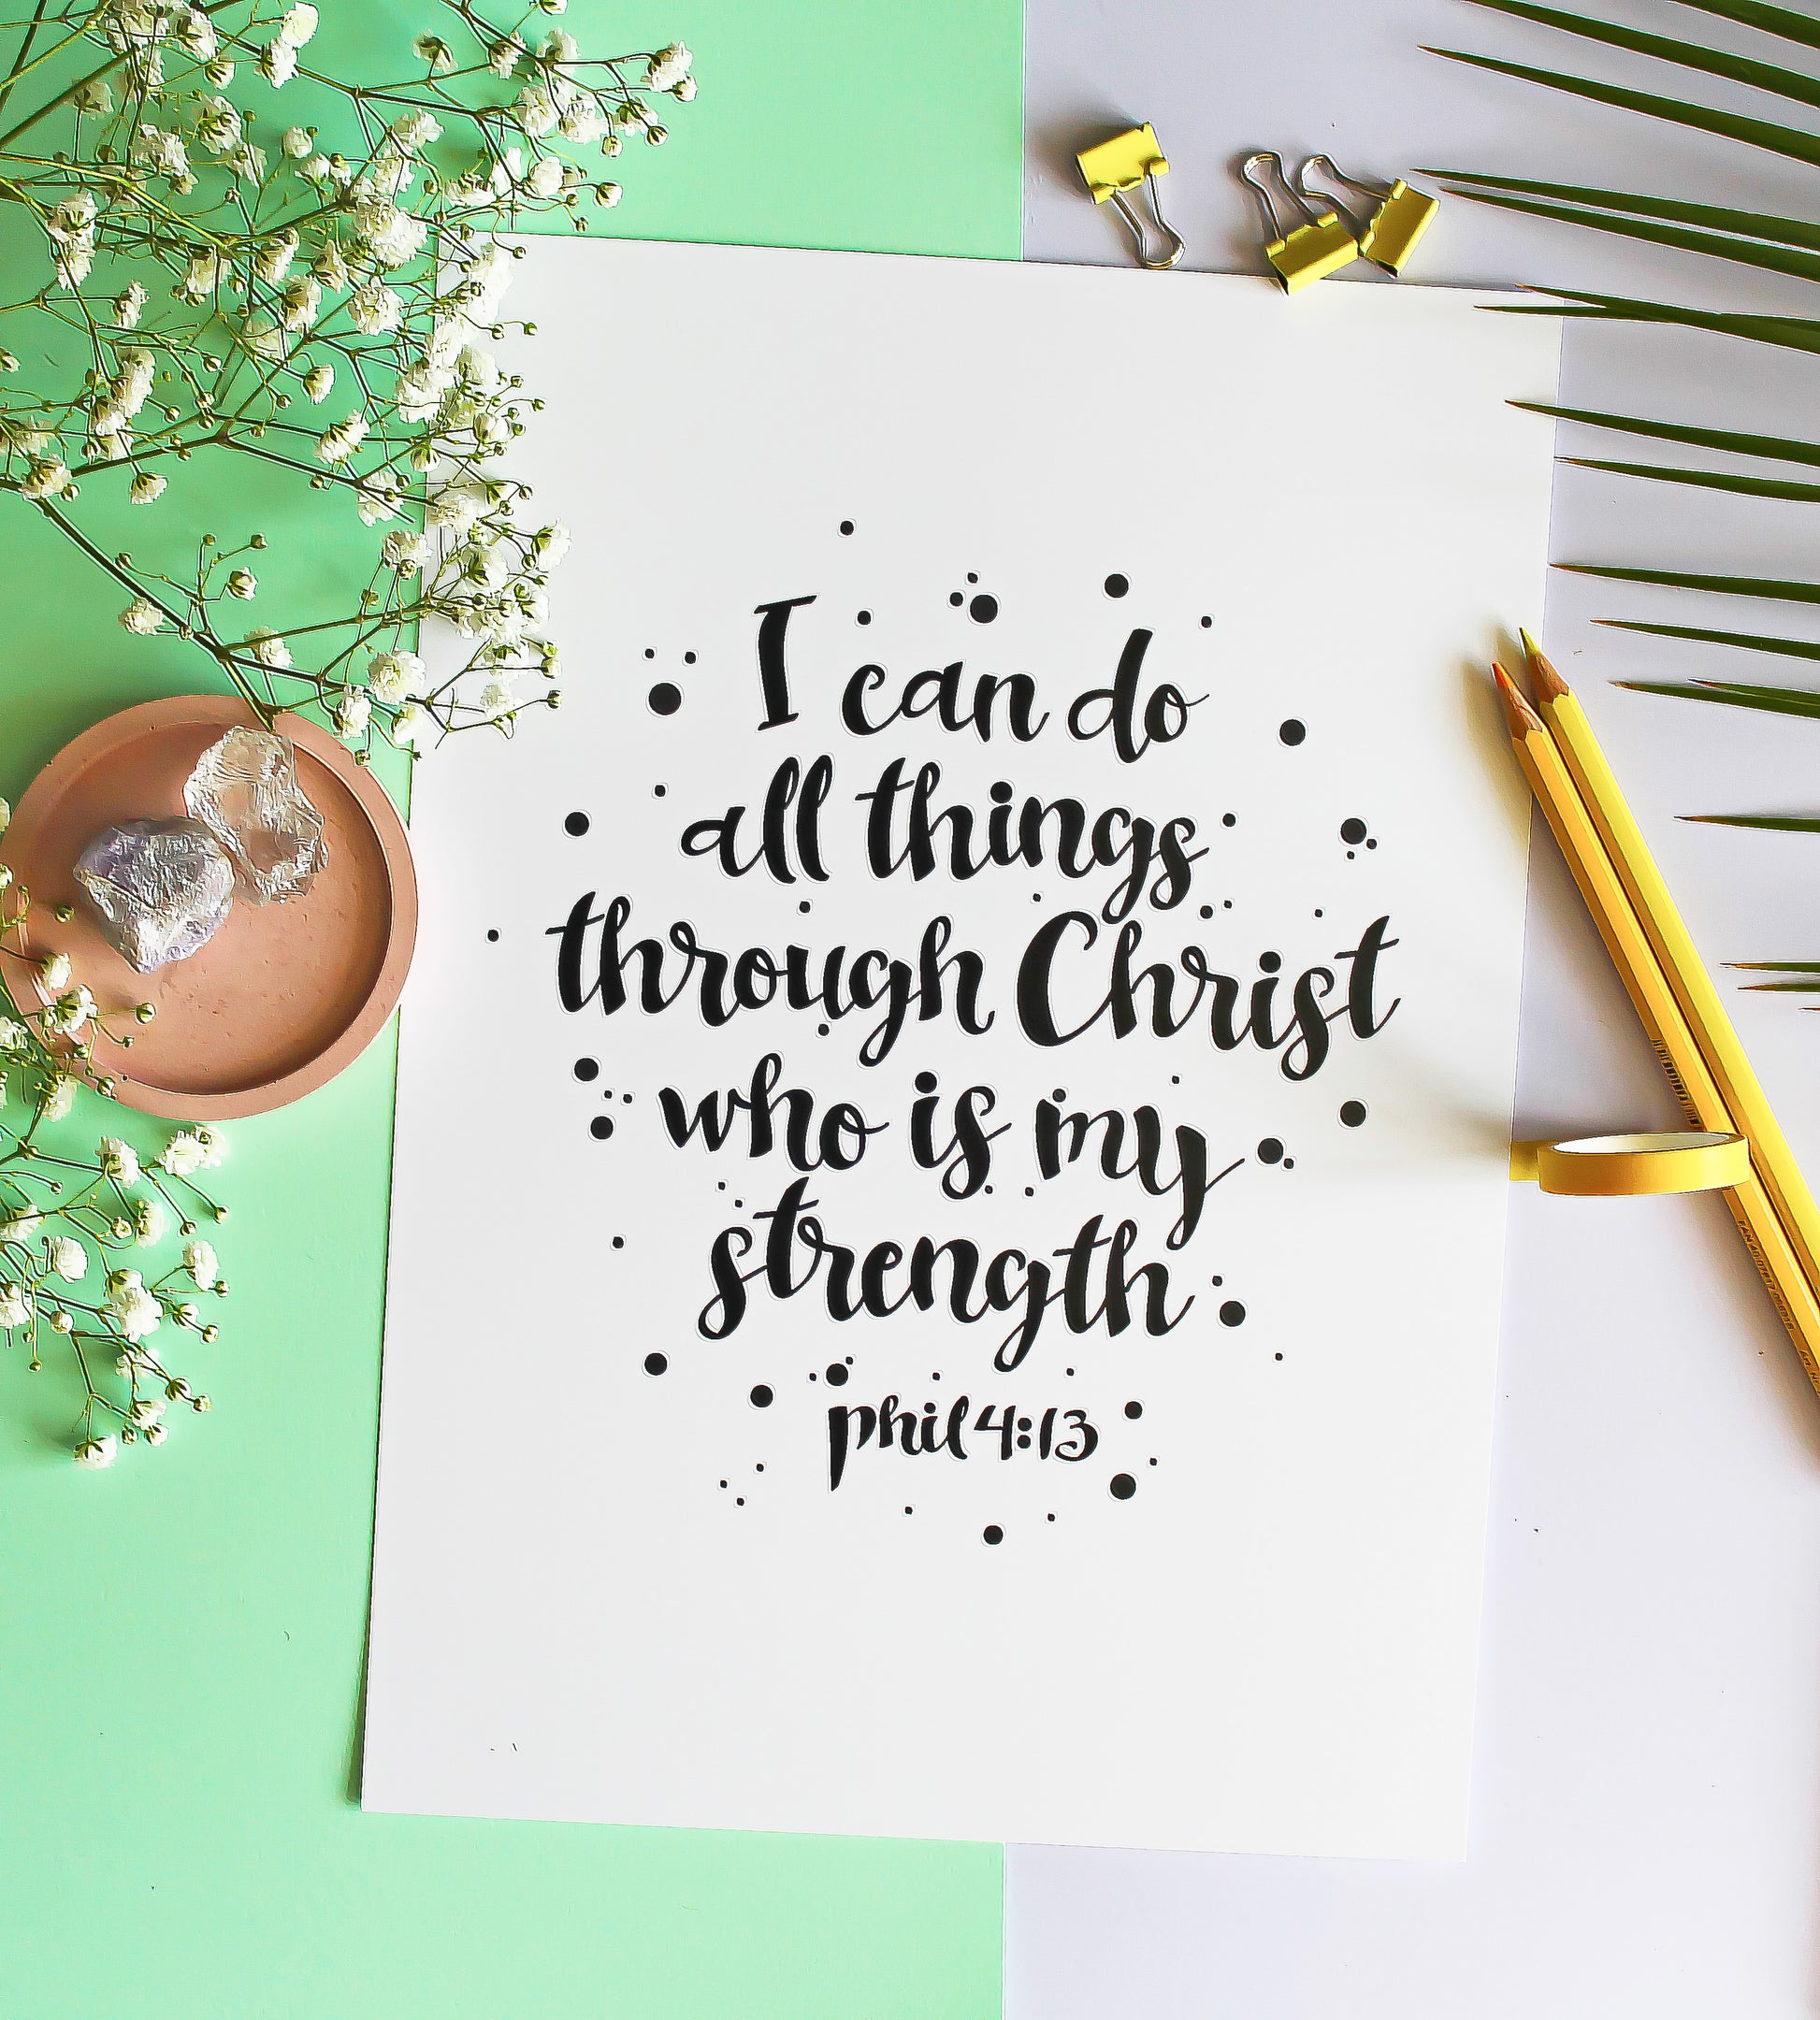 I can do
all things
through Christ
who is my
strength
phil 4:13